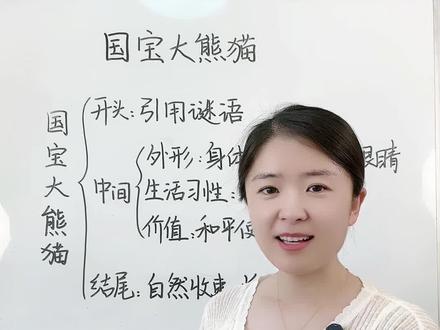 国宝大熊猫
国宝大熊猫
开头:引用谜语
中间
外形:身体 眼睛
生活习性:
价值:和平使
结尾:自然收束